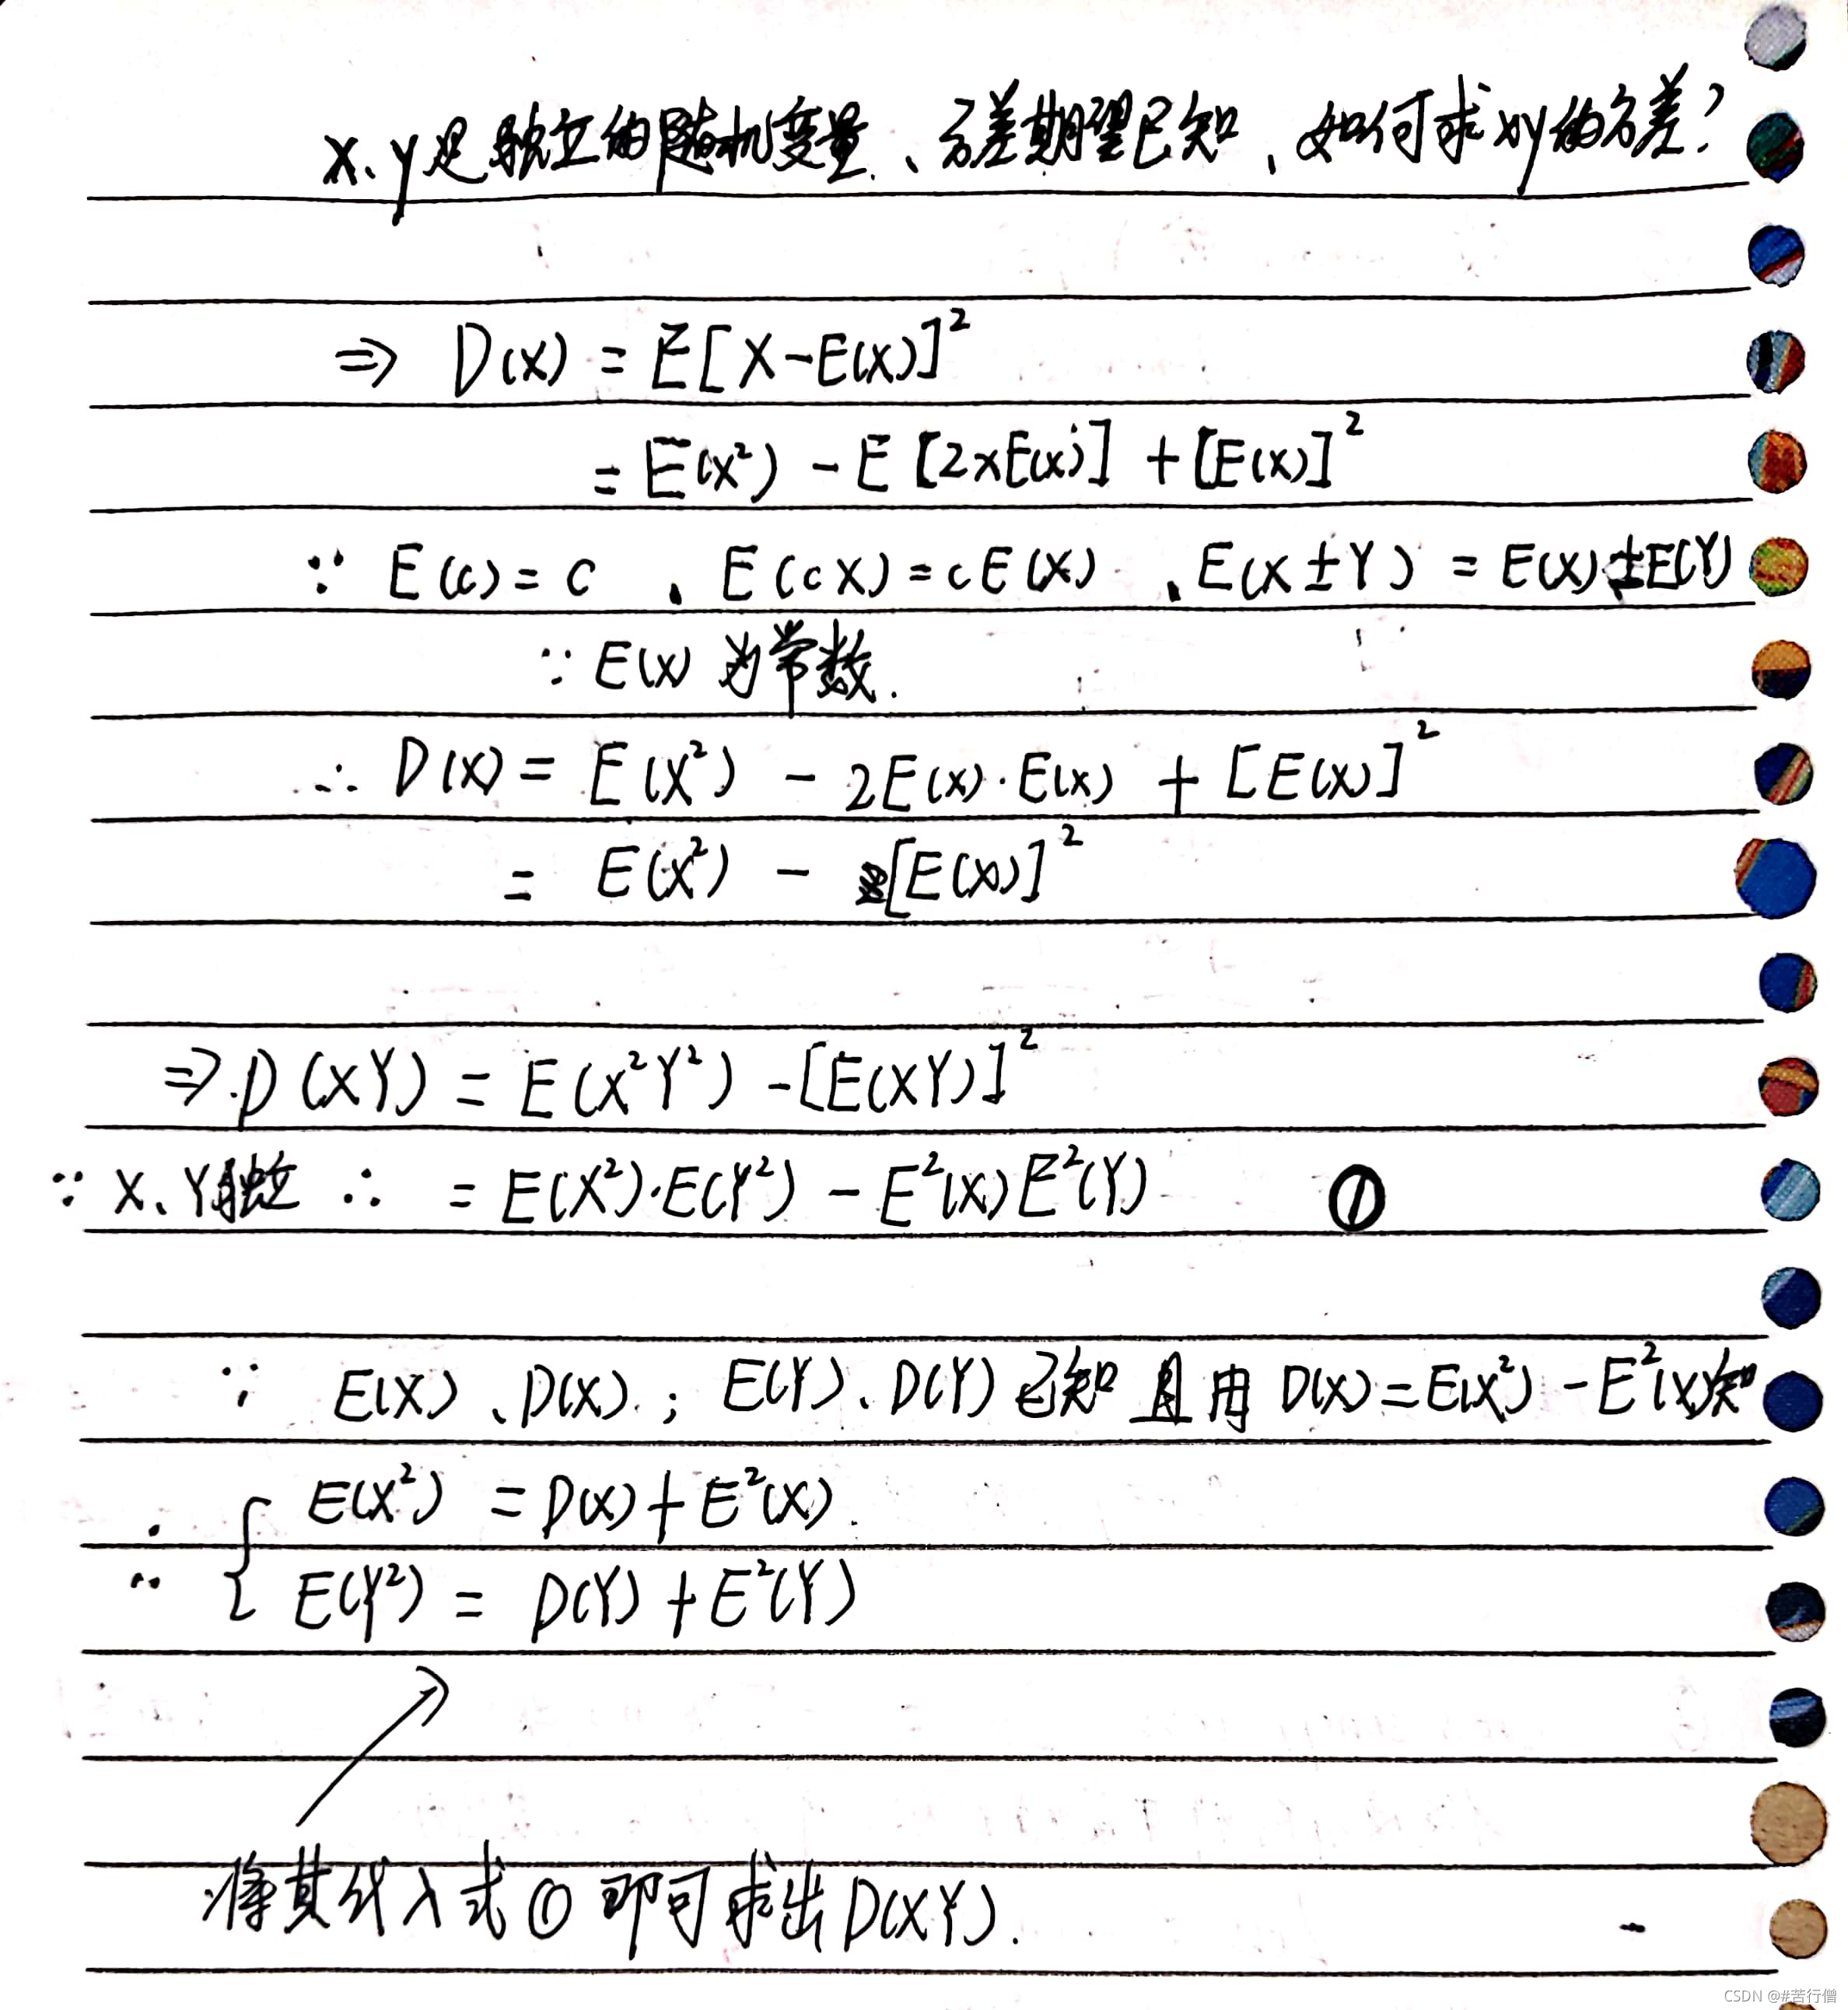 X、y是独立的随机变量、方差期望已知、如何求xy的方差?
⇒ D(X) = E[X-E(X)]²
= E(X²) - E[2XE(X)] + [E(X)]²
∵ E(c) = c 、E(cX) = cE(X) 、E(X±Y) = E(X)±E(Y)
∵ E(X) 为常数.
∴ D(X) = E(X²) - 2E(X)·E(X) + [E(X)]²
= E(X²) - [E(X)]²
⇒ D(XY) = E(X²Y²) - [E(XY)]²
∵ X、Y独立 ∴ = E(X²)·E(Y²) - E²(X)E²(Y) ①
∵ E(X)、D(X); E(Y)、D(Y) 已知 且由 D(X) = E(X²) - E²(X)知
∴ { E(X²) = D(X) + E²(X)
E(Y²) = D(Y) + E²(Y)
将其代入式 ① 即可求出 D(XY).
CSDN @#苦行僧